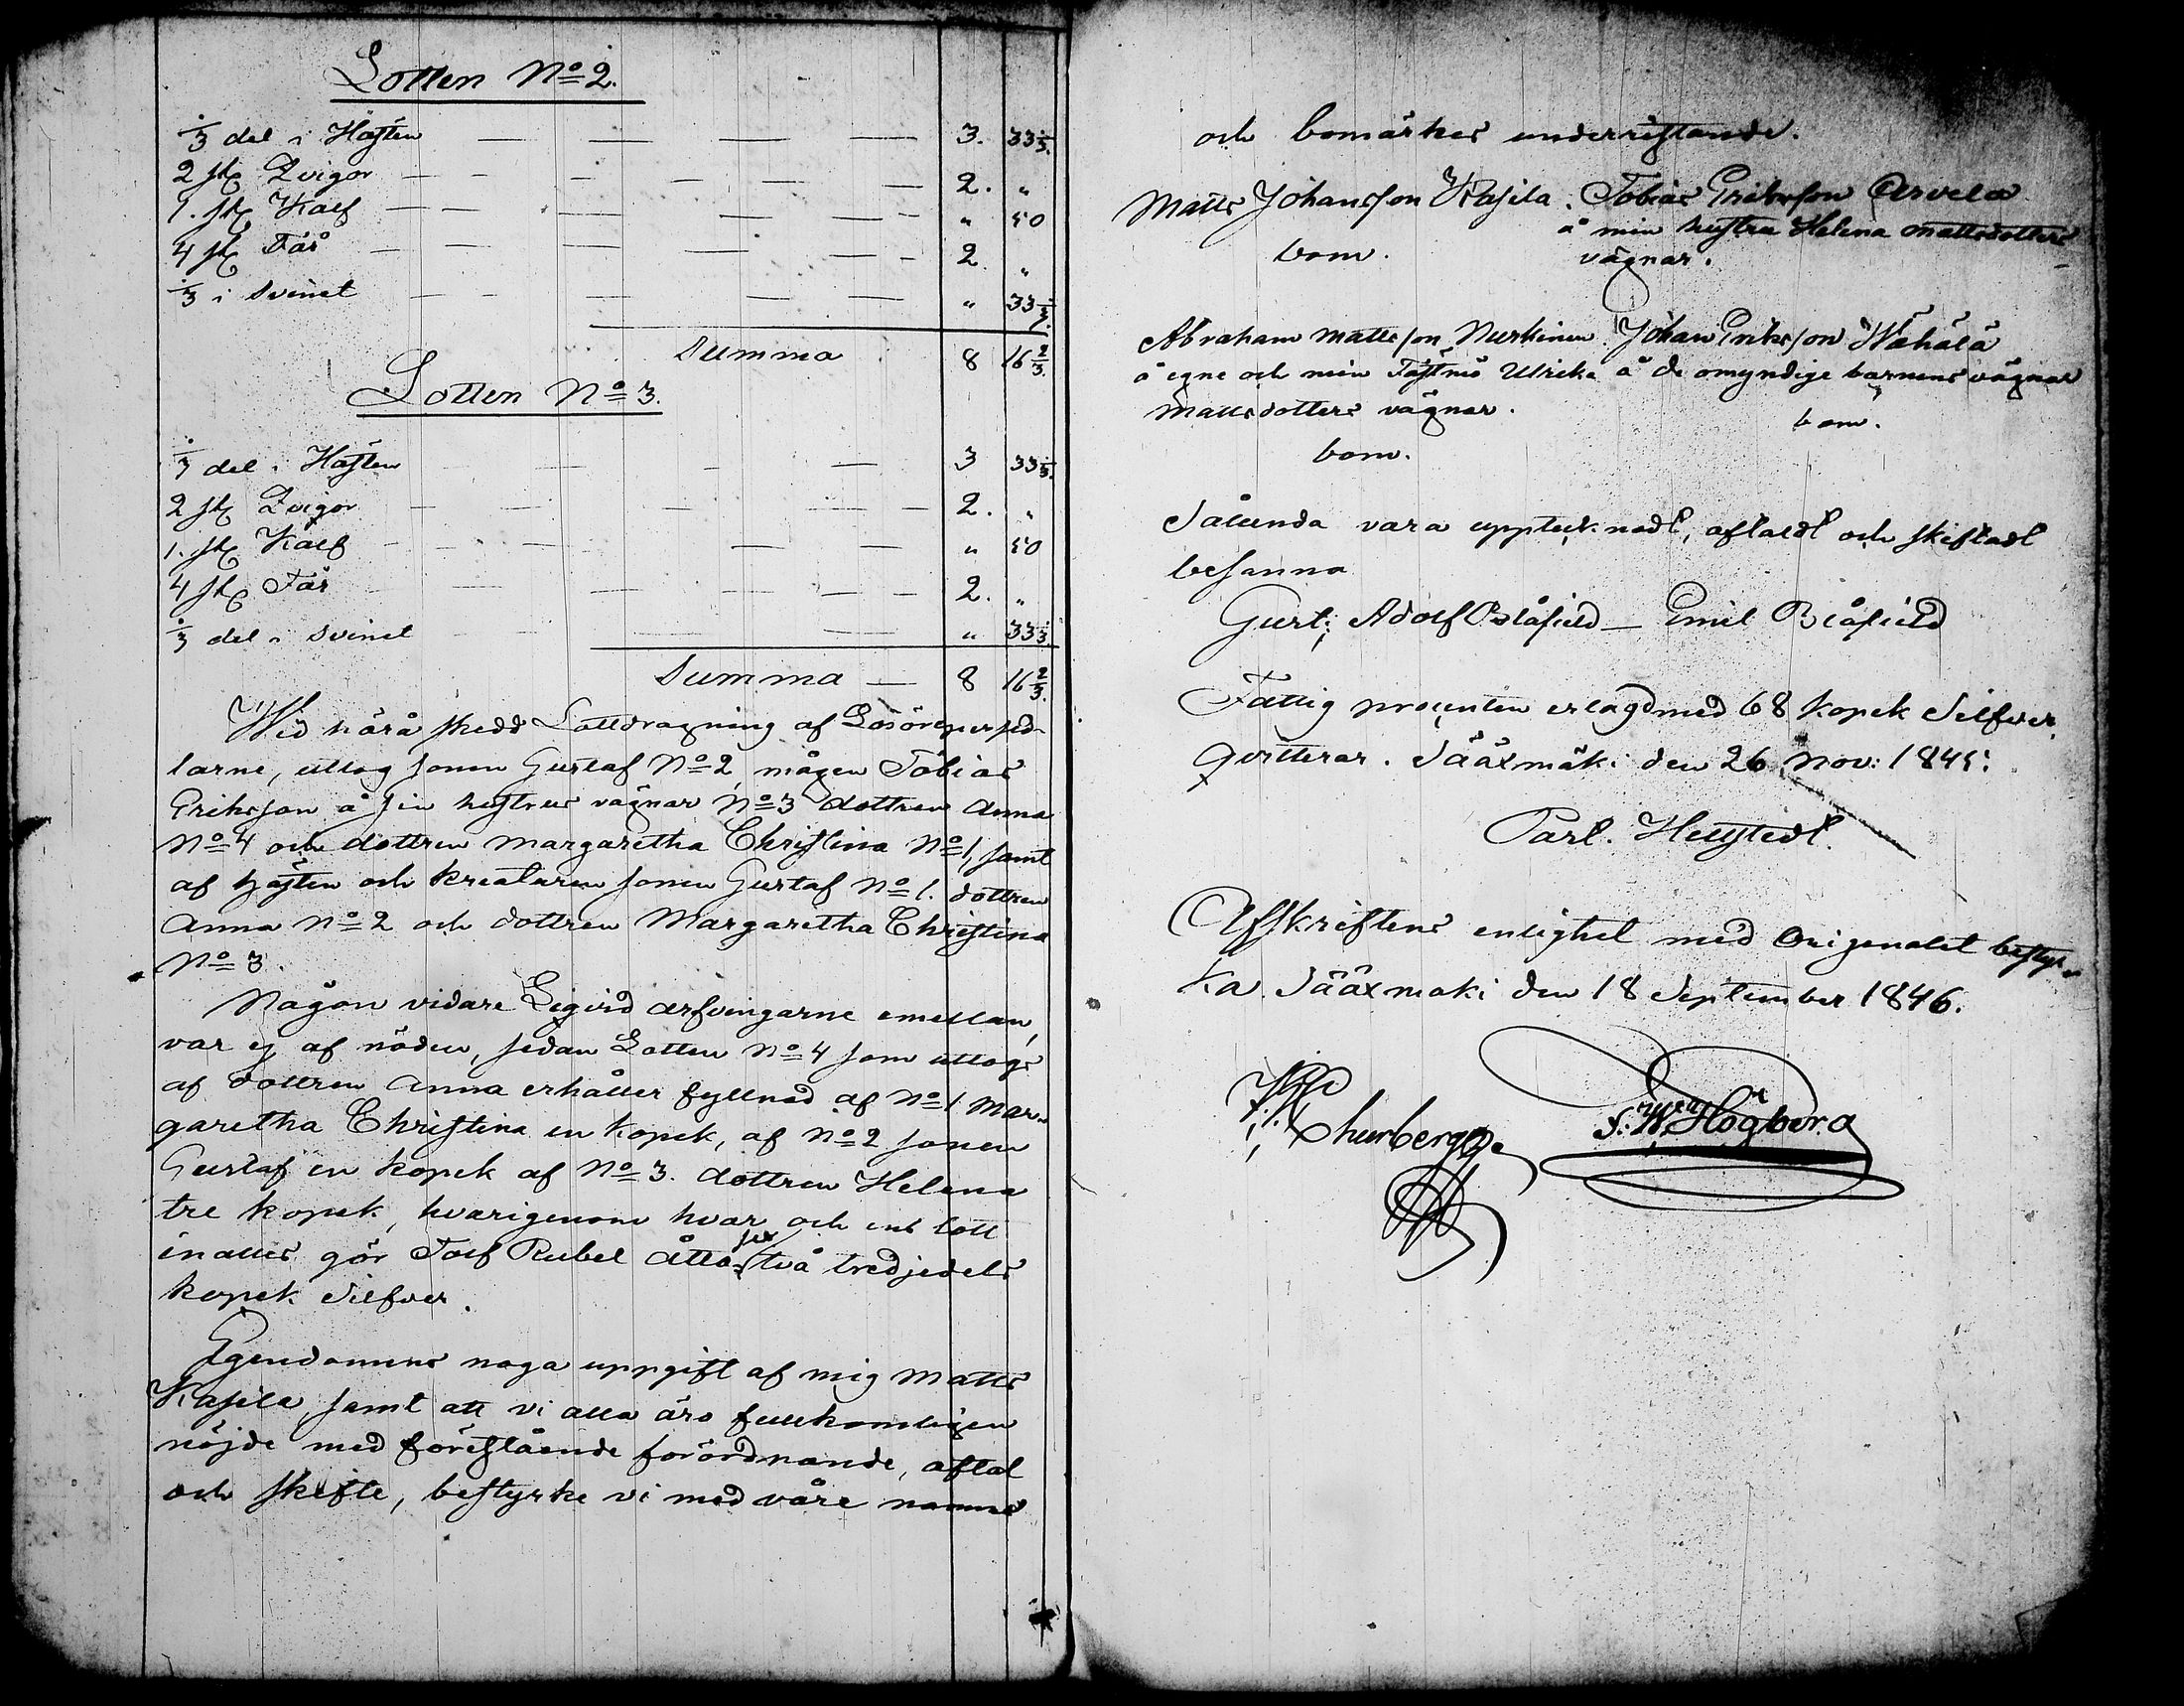 Lotten No 2.
1/3 del i Hästen — — — — 3. 33 1/3.
2 st Qvigor — — — — — 2. "
1. st Kalf — — — — — " 50
4 st Får — — — — — 2 "
1/3 i Svinet — — — — — " 33 1/3.
Summa 8 16 2/3.
Lotten No 3.
1/3 del i Hästen — — — — 3 33 1/3.
2 st Qvigor — — — — — 2. "
1. st Kalf — — — — — " 50
4 st Får — — — — — 2. "
1/3 del i Svinet — — — — " 33 1/3.
Summa — 8 16 2/3.
Wid härå skedd Lottdragning af Lösörepersed-
larne, uttog sonen Gustaf No 2, mågen Tobias
Eriksson å sin hustrus vägnar No 3 dottren Anna
No 4 och dottren Margaretha Christina No 1, samt
af hästen och kreaturen sonen Gustaf No 1. dottren
Anna No 2 och dottren Margaretha Christina
No 3.
Någon vidare Liqvid arfvingarne emellan,
var ej af nöden, sedan Lotten No 4 som uttogs
af dottren Anna erhåller fyllnad af No 1 Mar-
garetha Christina en kopek, af No 2 sonen
Gustaf en kopek af No 3. dottren Helena
tre kopek, hvarigenom hvar och ens lott
inalles gör Tolf Rubel Åttasex två tredjedels
kopek Silfver.
Egendomens noga uppgift af mig Matts
Kasila, samt att vi alla äro fullkomligen
nöjde med förestående förordnande, aftal
och skifte, bestyrke vi med våre namns
och bomärkes underristande.
Matts Johansson Kasila. Tobias Eriksson Arvela
å min hustru Helena Mattsdotters
bom. vägnar.
Abraham Mattsson Nurkinen Johan Eriksson Wähälä
å egne och min Fästmö Ulrika å de omyndige barnens vägnar
Mattsdotters vägnar. bom.
bom.
Sålunda vara upptecknadt, aftaldt och skiftadt
besanna
Gust: Adolf Blåfield — Emil Blåfield
Fattig procenten erlagd med 68 kopek Silfver
qvitterar. Sääxmäki den 26 Nov: 1845:
Carl. Hellstedt.
Afskriftens enlighet med Originalet bestyr-
ka. Sääxmäki den 18 September 1846.
Churberg S: W: Högberg